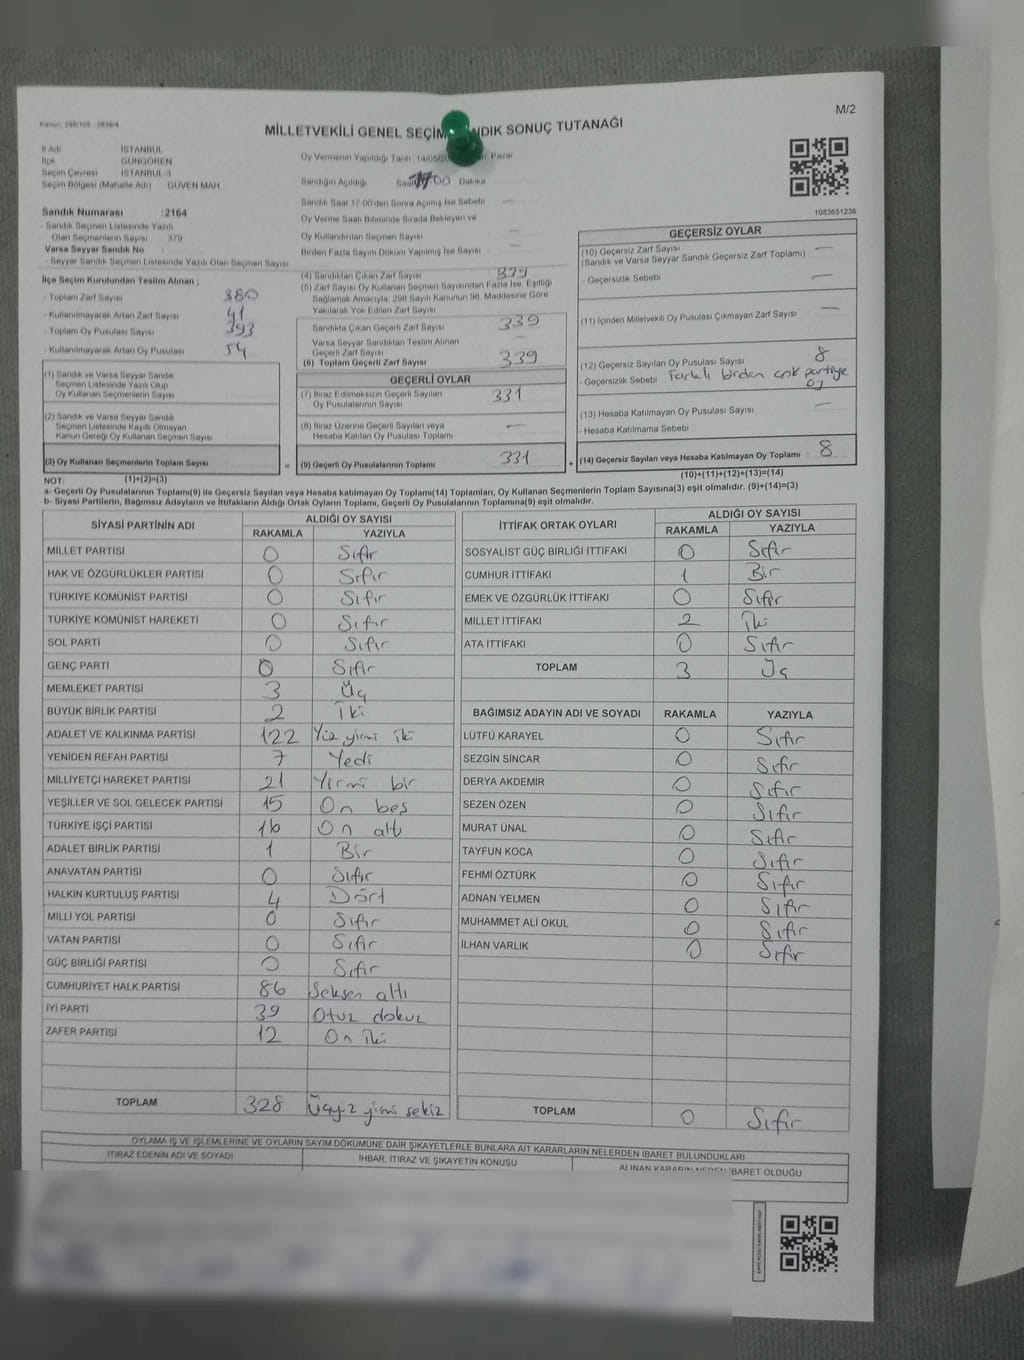 M/2
MİLLETVEKİLİ GENEL SEÇİM NDIK SONUÇ TUTANAĞI
İl Adı İSTANBUL
İlçe GÜNGÖREN
Seçim Çevresi İSTANBUL 3
Seçim Bölgesi (Mahalle Adı) GÜVEN MAH.
Oy Vermenin Yapıldığı Tarih 14/05/20 Pazar
Sandığın Açıldığı Saat 17:00 Dakika
Sandık Saat 17:00'den Sonra Açılmış İse Sebebi
Oy Verme Saati Bitiminde Sırada Bekleyen ve
Oy Kullandırılan Seçmen Sayısı
Birden Fazla Sayım Döküm Yapılmış İse Sayısı
Sandık Numarası : 2164
- Sandık Seçmen Listesinde Yazılı
Olan Seçmenlerin Sayısı : 379
Varsa Seyyar Sandık No
- Seyyar Sandık Seçmen Listesinde Yazılı Olan Seçmen Sayısı
İlçe Seçim Kurulundan Teslim Alınan ;
- Toplam Zarf Sayısı 380
- Kullanılmayarak Artan Zarf Sayısı 41
- Toplam Oy Pusulası Sayısı 393
- Kullanılmayarak Artan Oy Pusulası 54
(1) Sandık ve Varsa Seyyar Sandık
Seçmen Listesinde Yazılı Olup
Oy Kullanan Seçmenlerin Sayısı
(2) Sandık ve Varsa Seyyar Sandık
Seçmen Listesinde Kayıtlı Olmayan
Kanun Gereği Oy Kullanan Seçmen Sayısı
(3) Oy Kullanan Seçmenlerin Toplam Sayısı
(4) Sandıktan Çıkan Zarf Sayısı 339
(5) Zarf Sayısı Oy Kullanan Seçmen Sayısından Fazla İse, Eşitliği
Sağlamak Amacıyla, 298 Sayılı Kanunun 98. Maddesine Göre
Yakılarak Yok Edilen Zarf Sayısı
Sandıkta Çıkan Geçerli Zarf Sayısı 339
Varsa Seyyar Sandıktan Teslim Alınan
Geçerli Zarf Sayısı
(6) Toplam Geçerli Zarf Sayısı 339
GEÇERLİ OYLAR
(7) İtiraz Edilmeksizin Geçerli Sayılan
Oy Pusulalarının Sayısı 331
(8) İtiraz Üzerine Geçerli Sayılan veya
Hesaba Katılan Oy Pusulası Toplamı
= (9) Geçerli Oy Pusulalarının Toplamı 331 +
1083651236
GEÇERSİZ OYLAR
(10) Geçersiz Zarf Sayısı
(Sandık ve Varsa Seyyar Sandık Geçersiz Zarf Toplamı)
- Geçersizlik Sebebi
(11) İçinden Milletvekili Oy Pusulası Çıkmayan Zarf Sayısı
(12) Geçersiz Sayılan Oy Pusulası Sayısı 8
- Geçersizlik Sebebi Farklı birden çok partiye
oy
(13) Hesaba Katılmayan Oy Pusulası Sayısı
- Hesaba Katılmama Sebebi
(14) Geçersiz Sayılan veya Hesaba Katılmayan Oy Toplamı 8
NOT: (1)+(2)=(3) (10)+(11)+(12)+(13)=(14)
a- Geçerli Oy Pusulalarının Toplamı(9) ile Geçersiz Sayılan veya Hesaba katılmayan Oy Toplamı(14) Toplamları, Oy Kullanan Seçmenlerin Toplam Sayısına(3) eşit olmalıdır. (9)+(14)=(3)
b- Siyasi Partilerin, Bağımsız Adayların ve İttifakların Aldığı Ortak Oyların Toplamı, Geçerli Oy Pusulalarının Toplamına(9) eşit olmalıdır.
SİYASİ PARTİNİN ADI ALDIĞI OY SAYISI
RAKAMLA YAZIYLA
MİLLET PARTİSİ 0 Sıfır
HAK VE ÖZGÜRLÜKLER PARTİSİ 0 Sıfır
TÜRKİYE KOMÜNİST PARTİSİ 0 Sıfır
TÜRKİYE KOMÜNİST HAREKETİ 0 Sıfır
SOL PARTİ 0 Sıfır
GENÇ PARTİ 0 Sıfır
MEMLEKET PARTİSİ 3 Üç
BÜYÜK BİRLİK PARTİSİ 2 İki
ADALET VE KALKINMA PARTİSİ 122 Yüz yirmi iki
YENİDEN REFAH PARTİSİ 7 Yedi
MİLLİYETÇİ HAREKET PARTİSİ 21 Yirmi bir
YEŞİLLER VE SOL GELECEK PARTİSİ 15 On beş
TÜRKİYE İŞÇİ PARTİSİ 16 On altı
ADALET BİRLİK PARTİSİ 1 Bir
ANAVATAN PARTİSİ 0 Sıfır
HALKIN KURTULUŞ PARTİSİ 4 Dört
MİLLİ YOL PARTİSİ 0 Sıfır
VATAN PARTİSİ 0 Sıfır
GÜÇ BİRLİĞİ PARTİSİ 0 Sıfır
CUMHURİYET HALK PARTİSİ 86 Seksen altı
İYİ PARTİ 39 Otuz dokuz
ZAFER PARTİSİ 12 On iki
TOPLAM 328 Üçyüz yirmi sekiz
İTTİFAK ORTAK OYLARI ALDIĞI OY SAYISI
RAKAMLA YAZIYLA
SOSYALİST GÜÇ BİRLİĞİ İTTİFAKI 0 Sıfır
CUMHUR İTTİFAKI 1 Bir
EMEK VE ÖZGÜRLÜK İTTİFAKI 0 Sıfır
MİLLET İTTİFAKI 2 İki
ATA İTTİFAKI 0 Sıfır
TOPLAM 3 Üç
BAĞIMSIZ ADAYIN ADI VE SOYADI RAKAMLA YAZIYLA
LÜTFÜ KARAYEL 0 Sıfır
SEZGİN SİNCAR 0 Sıfır
DERYA AKDEMİR 0 Sıfır
SEZEN ÖZEN 0 Sıfır
MURAT ÜNAL 0 Sıfır
TAYFUN KOCA 0 Sıfır
FEHMİ ÖZTÜRK 0 Sıfır
ADNAN YELMEN 0 Sıfır
MUHAMMET ALİ OKUL 0 Sıfır
İLHAN VARLIK 0 Sıfır
TOPLAM 0 Sıfır
OYLAMA İŞ VE İŞLEMLERİNE VE OYLARIN SAYIM DÖKÜMÜNE DAİR ŞİKAYETLERLE BUNLARA AİT KARARLARIN NELERDEN İBARET BULUNDUKLARI
İTİRAZ EDENİN ADI VE SOYADI İHBAR, İTİRAZ VE ŞİKAYETİN KONUSU ALINAN KARARIN NEDEN İBARET OLDUĞU